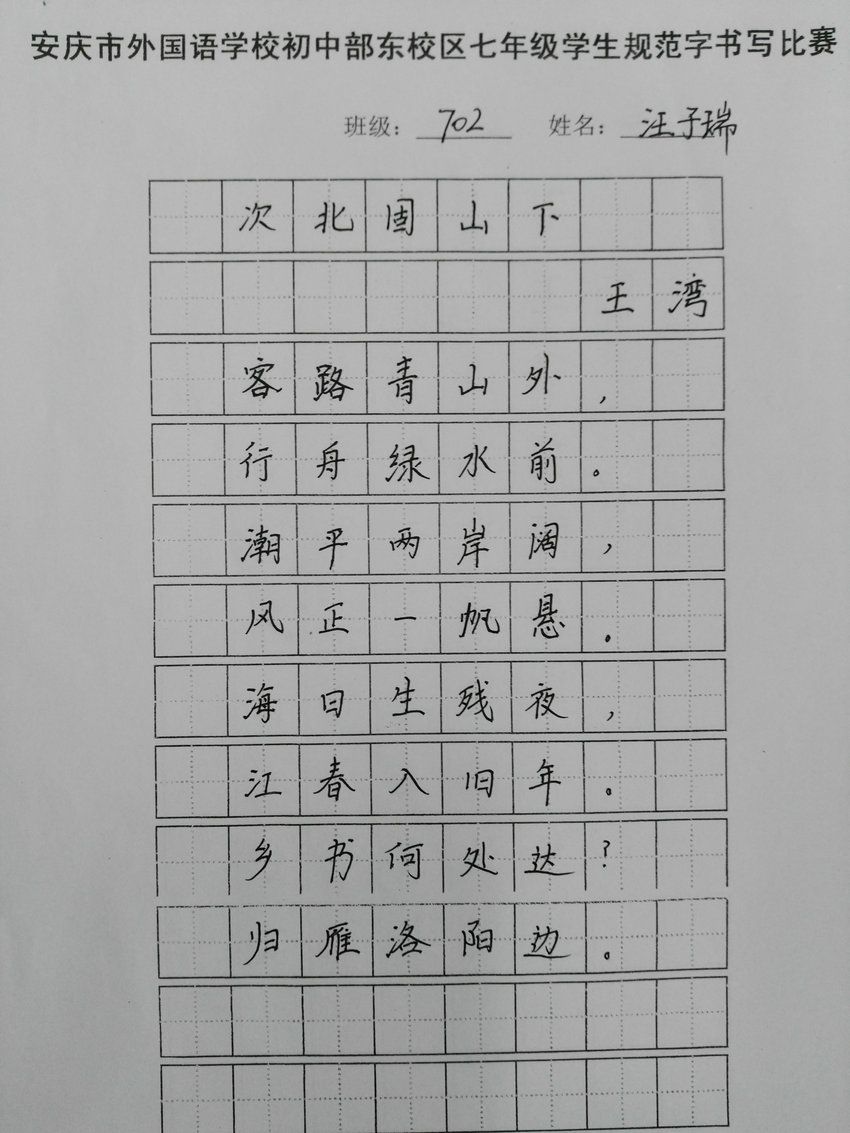 安庆市外国语学校初中部东校区七年级学生规范字书写比赛
班级：702 姓名：汪子瑞
次北固山下
王湾
客路青山外，
行舟绿水前。
潮平两岸阔，
风正一帆悬。
海日生残夜，
江春入旧年。
乡书何处达？
归雁洛阳边。